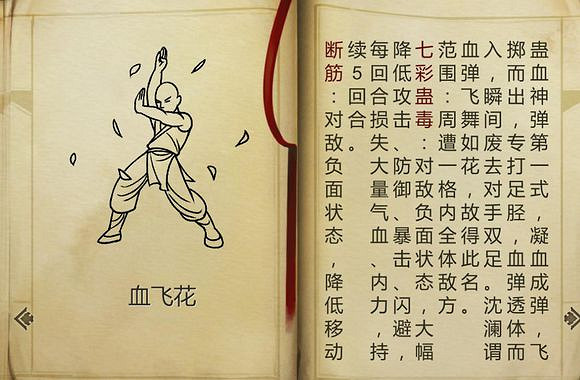 血飞花
蛊血神弹第一式，凝血成弹，飞
掷而出，专打足胫，血弹透体而
入，瞬间废去对手双足。沈澜谓
血弹飞舞如花，故得此名。
范围：周遭一格内全体敌方。
七彩蛊毒：对敌负面状态，大幅
降低攻击、防御、暴击、闪避，
每回合损失大量气血、内力，持
续5回合。
断筋：对敌。负面状态，降低移动